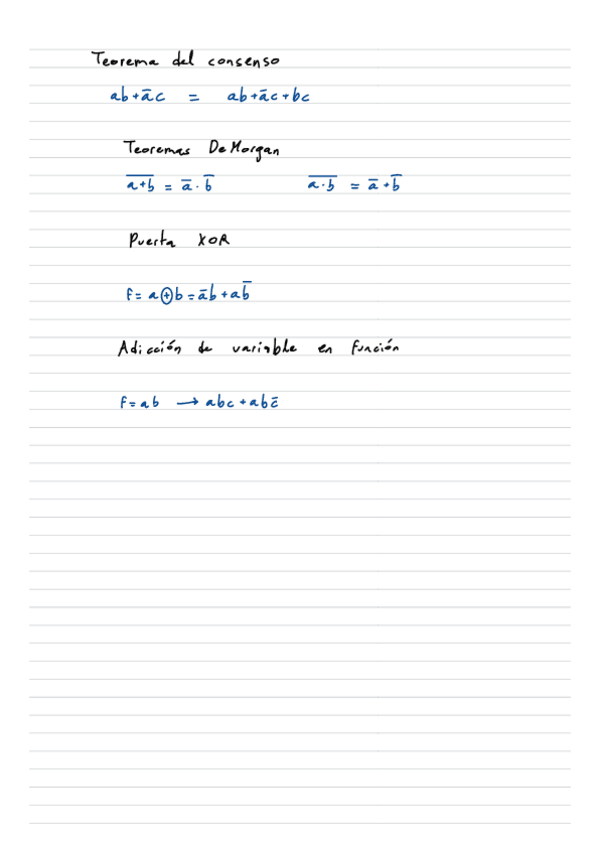 Teorema del consenso
ab + a̅c = ab + a̅c + bc
Teoremas De Morgan
a̅+̅b̅ = a̅ · b̅ a̅·̅b̅ = a̅ + b̅
Puerta XOR
F = a ⊕ b = a̅b + ab̅
Adicción de variable en función
F = ab → abc + abc̅